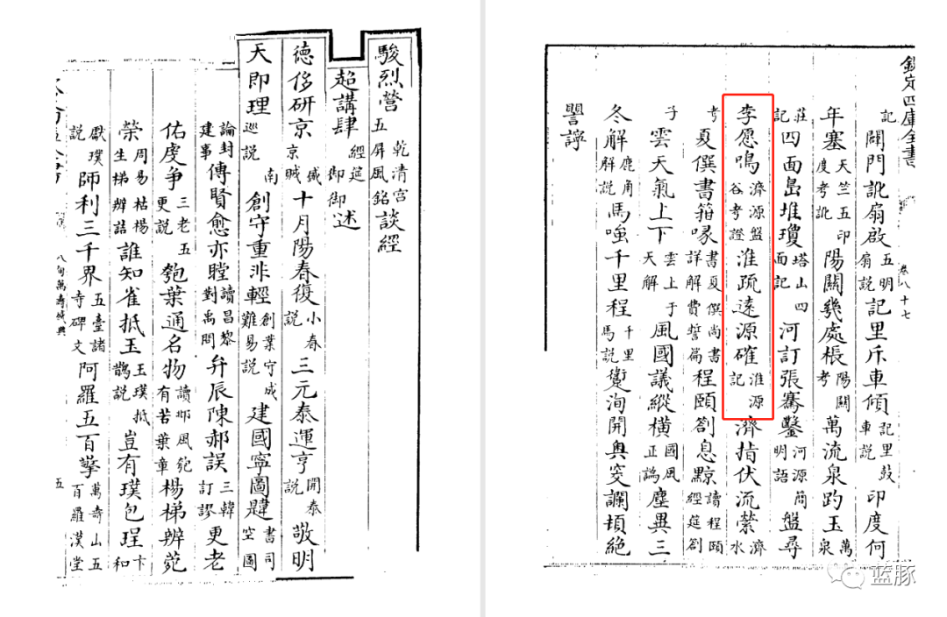 欽定四庫全書 卷八十七
記闢門訛扇啟五明扇說記里斥車傾記里鼓車說印度何
年塞天竺五印度考訛陽關幾處棖陽關考萬流泉趵玉萬泉
莊記四面島堆瓊塔山四面記河訂張騫鑿河源簡明語盤尋
李愿鳴濟源盤谷考證淮疏遠源確淮源記濟指伏流縈濟水
考夏僎書箱喙書夏僎尚書詳解費誓篇程頤劄息黥讀程頤經筵劄
子雲天氣上下雲上于天解風國議縱橫國風正譌麈異三
冬解鹿角解說馬嗤千里程千里馬說洵開奧窔讕頡絶
駿烈營乾清宮五屏風銘談經
超講肆經筵御述
德侈研京盛京賦十月陽春復小春說三元泰運亨開泰說敬明
天即理南巡說創守重非輕創業守成難易說建國寧圖肄書司空圖
論封建事傅賢愈亦瞠讀昌黎對禹問弁辰陳郝誤三韓訂謬更老
佑虔爭三老五更說匏葉通名物讀邶風匏有苦葉章楊梯辨菀
榮周易枯楊生梯辨詁誰知雀抵玉玉璞抵鵲說豈有璞包珵卞和
獻璞說師利三千界五臺諸寺碑文阿羅五百擎萬壽山五百羅漢堂
八旬萬壽盛典 五
蓝豚